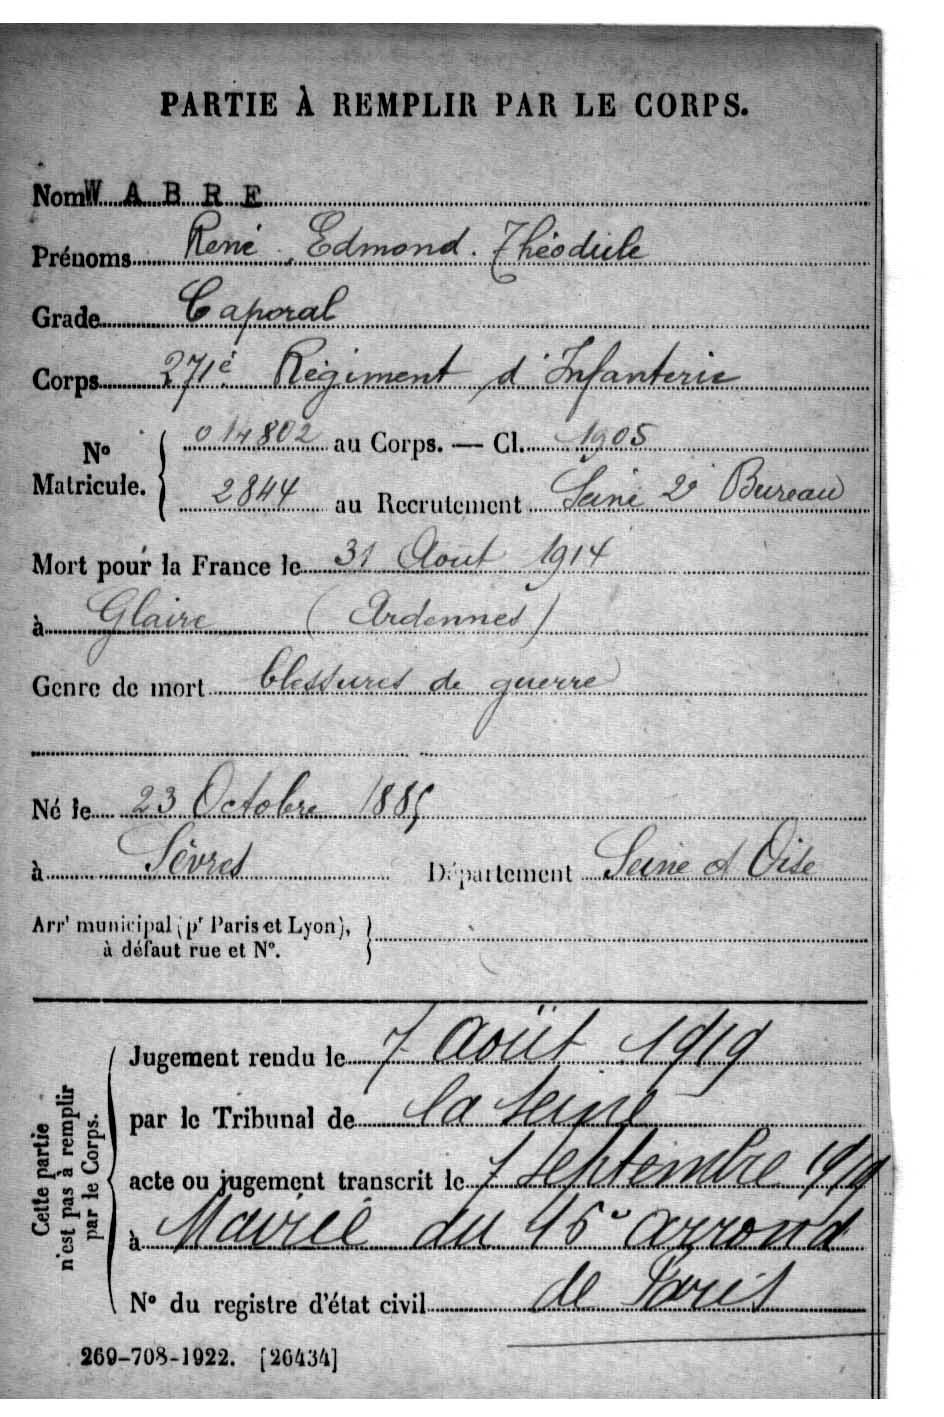 PARTIE À REMPLIR PAR LE CORPS.
Nom WABRE
Prénoms René, Edmond. Théodule
Grade Caporal
Corps 271è Régiment d'Infanterie
No Matricule. 014802 au Corps. — Cl. 1905
2844 au Recrutement Seine 2e Bureau
Mort pour la France le 31 Août 1914
à Glaire (Ardennes)
Genre de mort blessures de guerre
Né le 23 Octobre 1885
à Sèvres Département Seine et Oise
Arrt municipal (pr Paris et Lyon),
à défaut rue et No.
Cette partie
n'est pas à remplir
par le Corps.
Jugement rendu le 7 Août 1919
par le Tribunal de la Seine
acte ou jugement transcrit le Septembre 1919
à Mairie du arrond
No du registre d'état civil de Paris
269-708-1922. [26434]